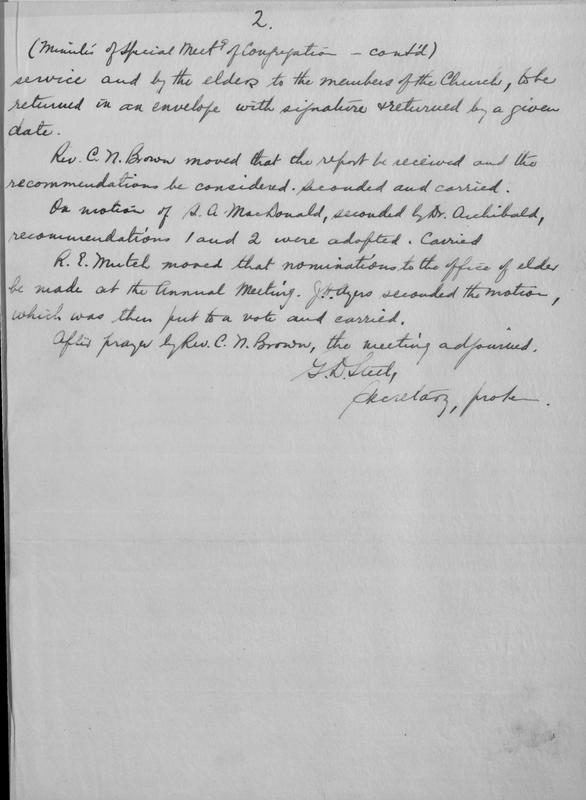 2.
(Minutes of Special Meetg of Congregation - cont'd)
service and by the elders to the members of the Church, to be
returned in an envelope with signature & returned by a given
date.
Rev. C. N. Brown moved that the report be received and the
recommendations be considered. Seconded and carried.
On motion of S. A. MacDonald, seconded by Dr. Archibald,
recommendations 1 and 2 were adopted. Carried
R. E. Mutch moved that nominations to the office of elder
be made at the Annual Meeting. J. H. Ayers seconded the motion,
which was then put to a vote and carried.
After prayer by Rev. C. N. Brown, the meeting adjourned.
D. Steel,
Secretary, protem.